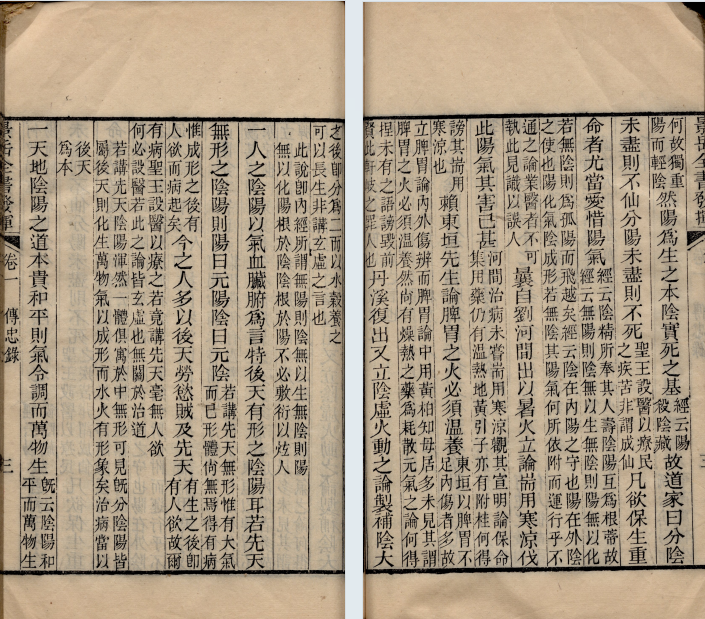 景岳全書發揮
何故獨重陽而輕陰然陽爲生之本陰實死之基經云陽殺陰藏故道家曰分陰
未盡則不仙分陽未盡則不死聖王設醫以療民之疾苦非謂成仙凡欲保生重
命者尤當愛惜陽氣經云陰精所奉其人壽陰陽互爲根蒂故經云無陽則陰無以生無陰則陽無以化
若無陰則爲孤陽而飛越矣經云陰在內陽之守也陽在外陰之使也陽化氣陰成形若無陰其陽氣何所依附而運行乎不
通之論業醫者不可執此見識以誤人曩自劉河間出以暑火立論耑用寒涼伐
此陽氣其害已甚河間治病未嘗耑用寒涼觀其宣明論保命集用藥仍有溫熱地黃引子亦有附桂何得
謗其耑用寒涼也賴東垣先生論脾胃之火必須溫養東垣以脾胃不足內傷者多故
立脾胃論內外傷辨而脾胃論中用黃柏知母居多未見其謂脾胃之火必須溫養然尚有燥熱之藥爲耗散元氣之論何得
捏未有之語謗毀前賢此軒岐之罪人也丹溪復出又立陰虛火動之論製補陰大
之後卽分爲二而以水穀養之可以長生非講玄虛之言也
此說卽內經所謂無陽則陰無以生無陰則陽無以化陽根於陰陰根於陽不必敷衍以炫人
一人之陰陽以氣血臟腑爲言特後天有形之陰陽耳若先天
無形之陰陽則陽曰元陽陰曰元陰若講先天無形惟有大氣而已形體尚無焉得有病
惟成形之後有人欲而病起矣今之人多以後天勞慾賊及先天有生之後卽有人欲故爾
有病聖王設醫以療之若竟講先天毫無人欲何必設醫若此之論皆玄虛也無關於治道
若講先天陰陽渾然一體俱寓於中無形可見旣分陰陽皆屬後天則化生萬物氣以成形而水火有形象矣治病當以
後天爲本
一天地陰陽之道本貴和平則氣令調而萬物生旣云陰陽和平而萬物生
景岳全書發揮 卷一 傳忠錄 三